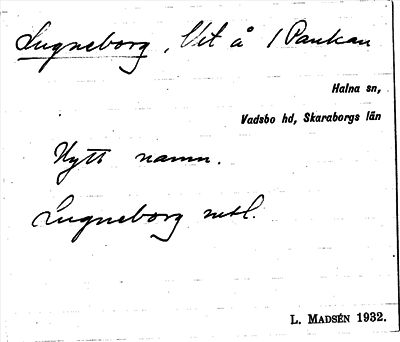 Lugneborg, Vit å /Pankan
Halna sn,
Vadsbo hd, Skaraborgs län
Nytt namn.
Lugneborg
L. MADSÉN 1932.